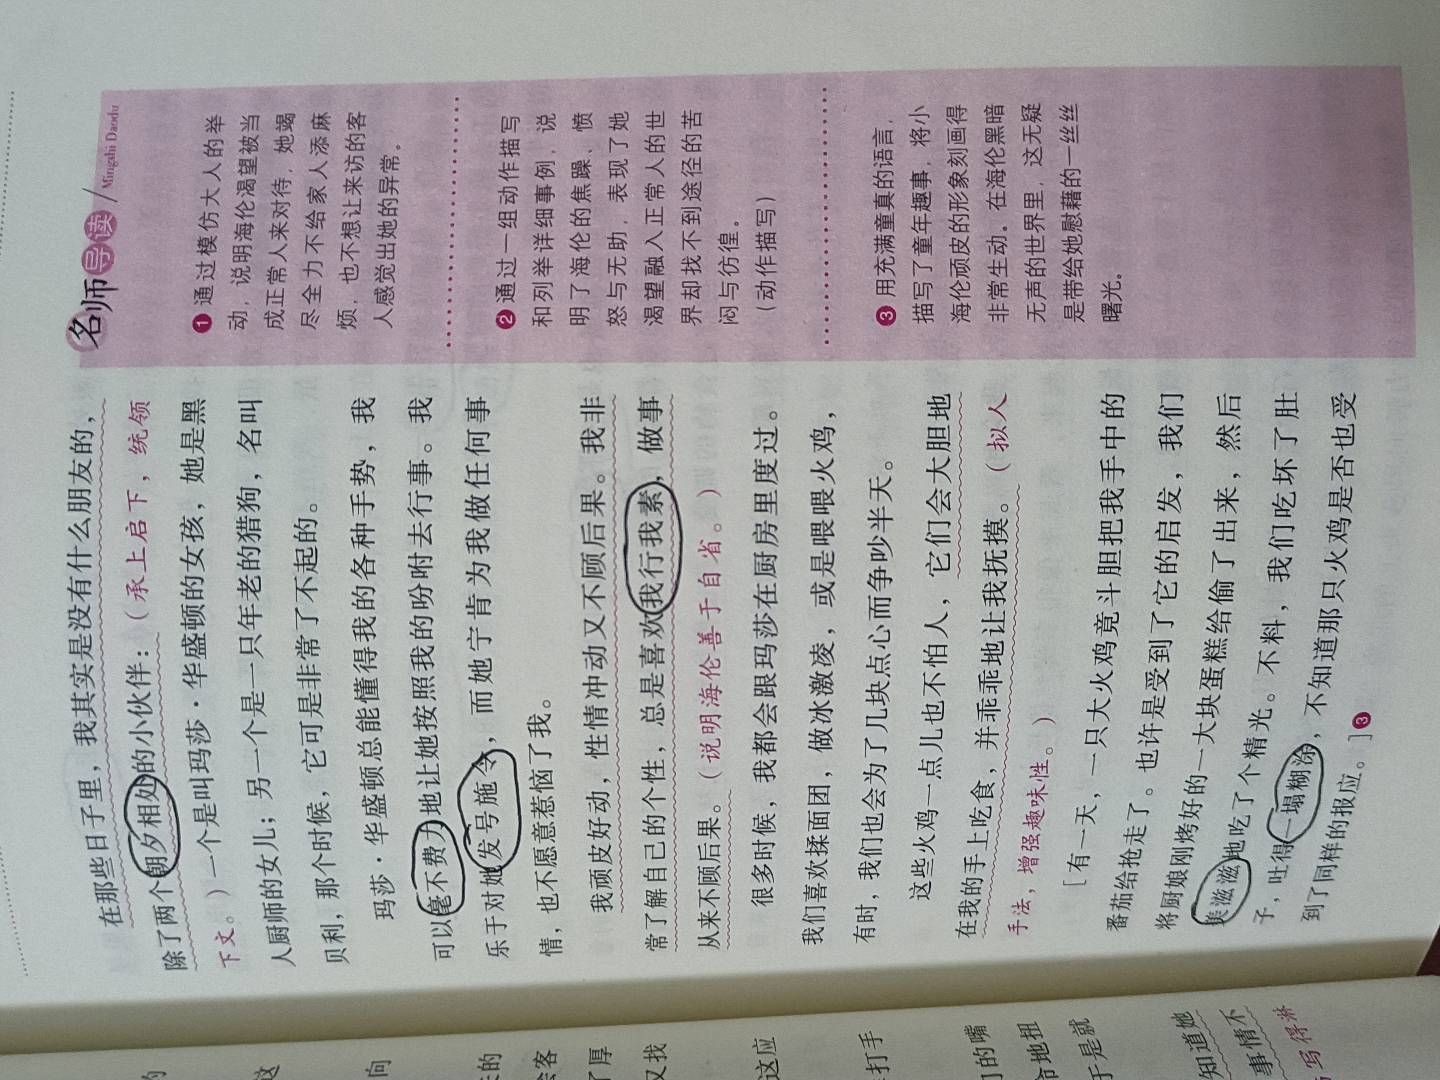 在那些日子里，我其实是没有什么朋友的，
除了两个朝夕相处的小伙伴：（承上启下，统领
下文。）一个是叫玛莎·华盛顿的女孩，她是黑
人厨师的女儿；另一个是一只年老的猎狗，名叫
贝利，那个时候，它可是非常了不起的。
玛莎·华盛顿总能懂得我的各种手势，我
可以毫不费力地让她按照我的吩咐去行事。我
乐于对她发号施令，而她宁肯为我做任何事
情，也不愿意惹恼了我。
我顽皮好动，性情冲动又不顾后果。我非
常了解自己的个性，总是喜欢我行我素，做事
从来不顾后果。（说明海伦善于自省。）
很多时候，我都会跟玛莎在厨房里度过。
我们喜欢揉面团，做冰激凌，或是喂喂火鸡，
有时，我们也会为了几块点心而争吵半天。
这些火鸡一点儿也不怕人，它们会大胆地
在我的手上吃食，并乖乖地让我抚摸。（拟人
手法，增强趣味性。）
［有一天，一只大火鸡竟斗胆把我手中的
番茄给抢走了。也许是受到了它的启发，我们
将厨娘刚烤好的一大块蛋糕给偷了出来，然后
美滋滋地吃了个精光。不料，我们吃坏了肚
子，吐得一塌糊涂，不知道那只火鸡是否也受
到了同样的报应。］❸
名师导读/Mingshi Daodu
❶通过模仿大人的举
动，说明海伦渴望被当
成正常人来对待，她竭
尽全力不给家人添麻
烦，也不想让来访的客
人感觉出她的异常。
❷通过一组动作描写
和列举详细事例，说
明了海伦的焦躁、愤
怒与无助，表现了她
渴望融入正常人的世
界却找不到途径的苦
闷与彷徨。
（动作描写）
❸用充满童真的语言，
描写了童年趣事，将小
海伦顽皮的形象刻画得
非常生动。在海伦黑暗
无声的世界里，这无疑
是带给她慰藉的一丝丝
曙光。
这
向
的
会客
了厚
又找
这应
打手
们的嘴
地扭
于是就
知道她
事情不
写得淋